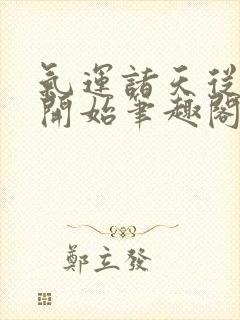 氣運諸天從
開始筆趣閣
鄭立發